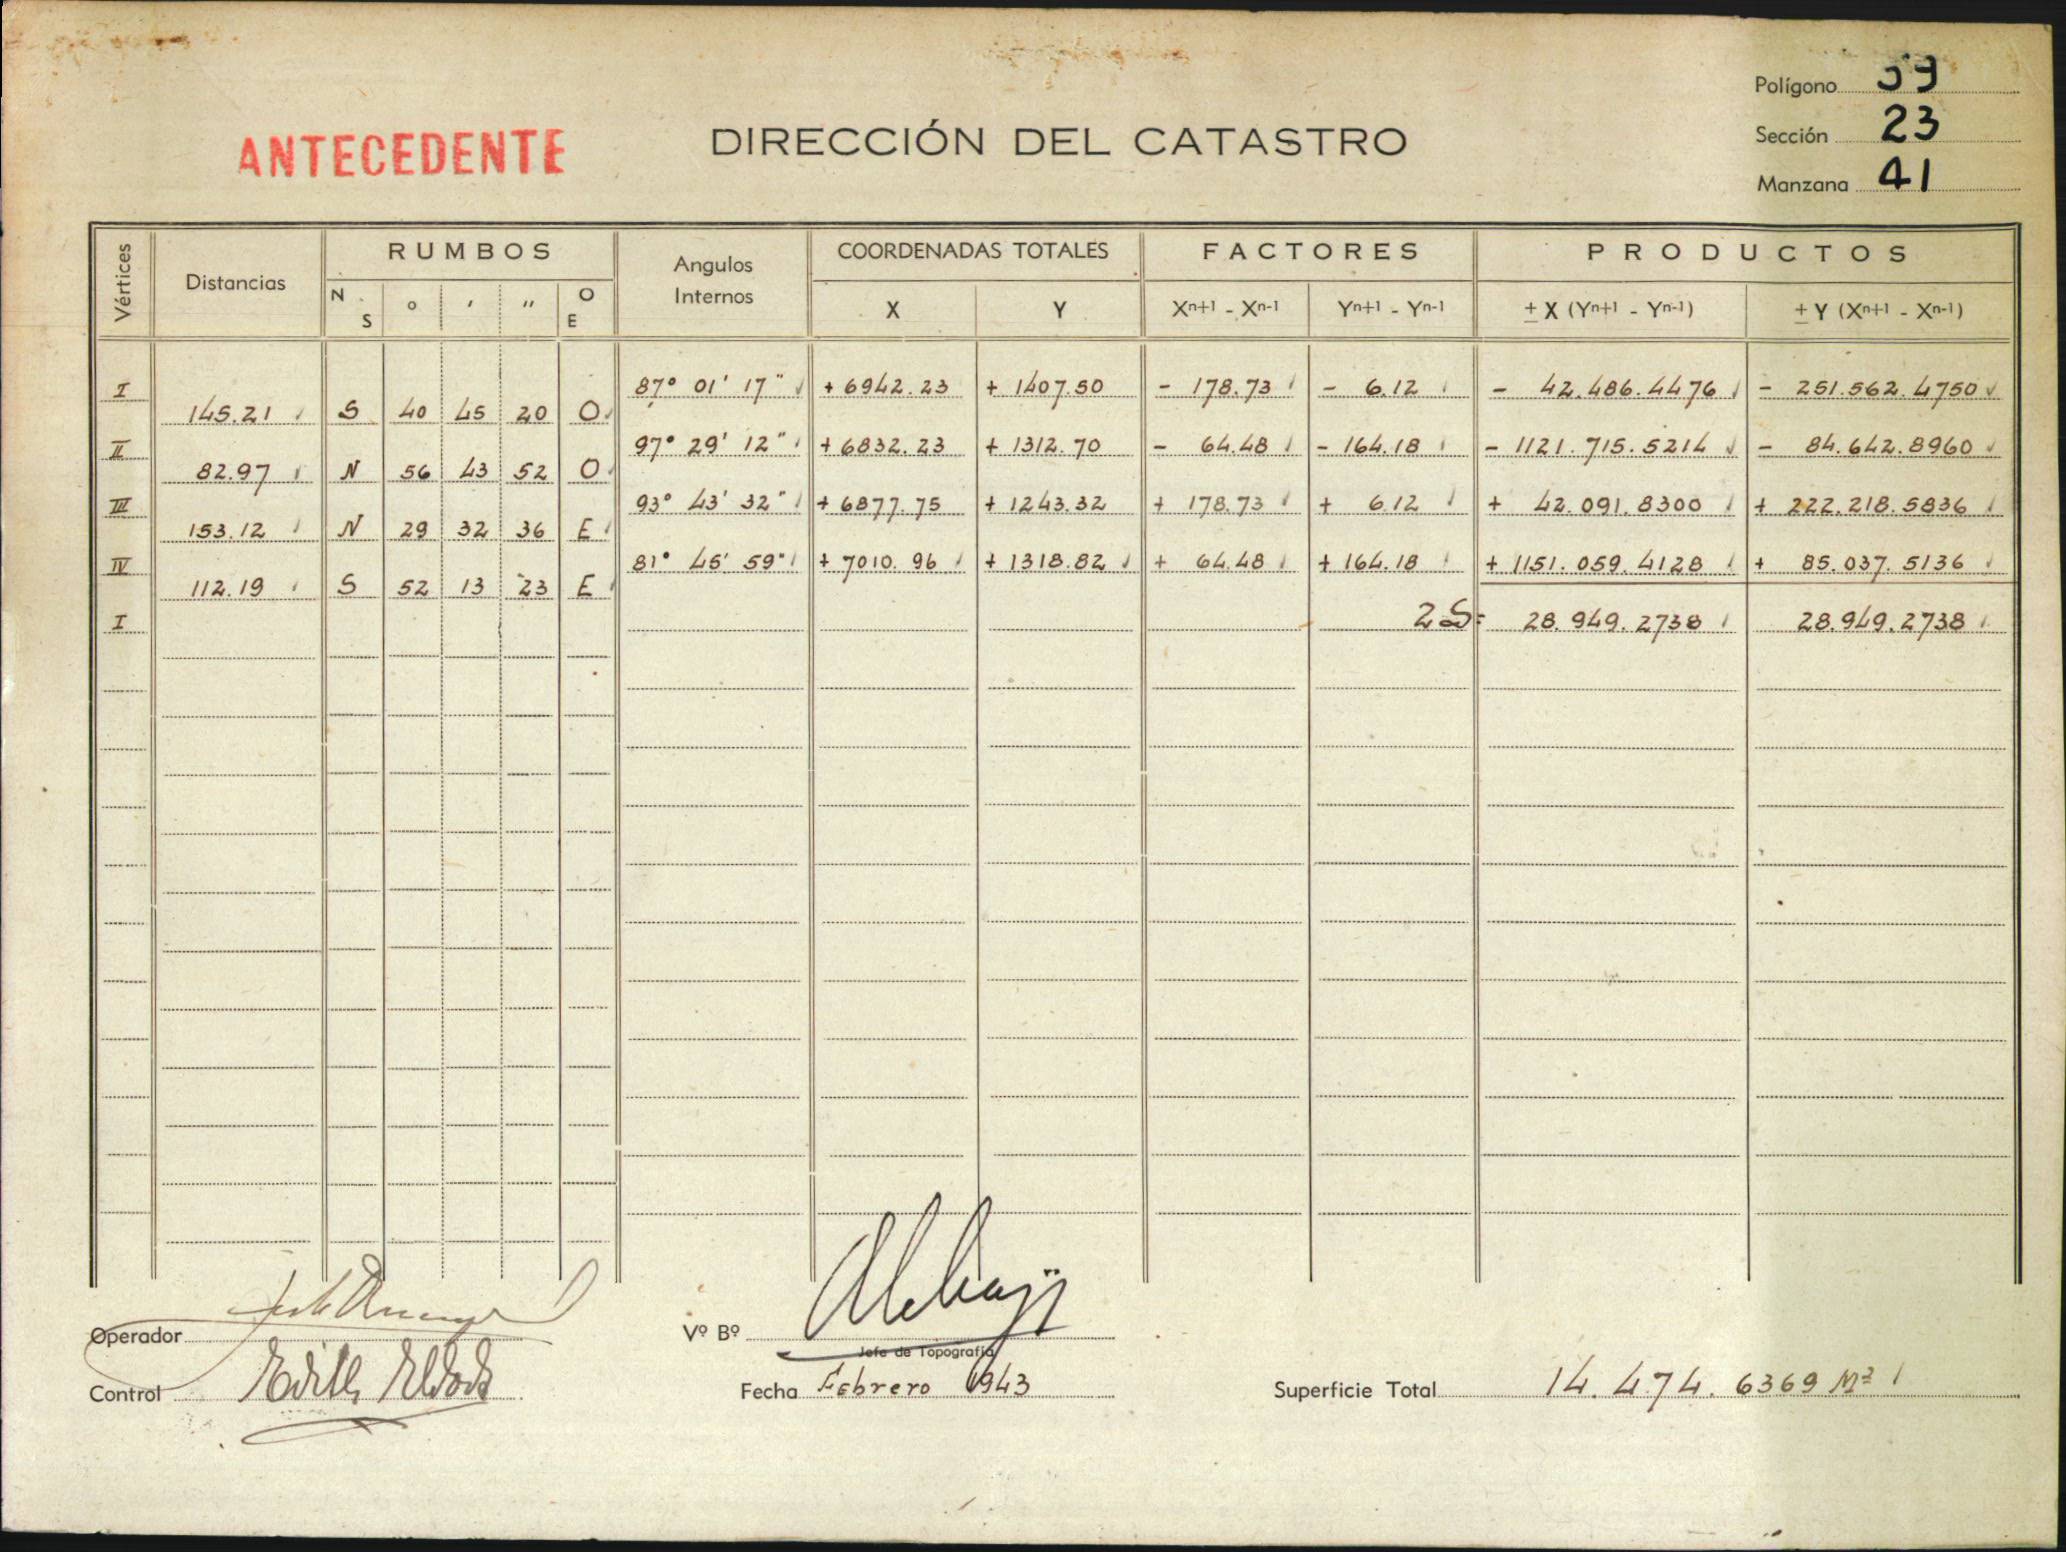 Polígono 59
ANTECEDENTE
DIRECCIÓN DEL CATASTRO
Sección 23
Manzana 41
Vértices Distancias RUMBOS Angulos Internos COORDENADAS TOTALES FACTORES PRODUCTOS
N S ° ' " O E X Y Xn+1 - Xn-1 Yn+1 - Yn-1 ± X (Yn+1 - Yn-1) ± Y (Xn+1 - Xn-1)
I 87° 01' 17" + 6942.23 + 1407.50 - 178.73 - 6.12 - 42.486.4476 - 251.562.4750
145.21 S 40 45 20 O
II 97° 29' 12" + 6832.23 + 1312.70 - 64.48 - 164.18 - 1121.715.5214 - 84.642.8960
82.97 N 56 43 52 O
III 93° 43' 32" + 6877.75 + 1243.32 + 178.73 + 6.12 + 42.091.8300 + 222.218.5836
153.12 N 29 32 36 E
IV 81° 45' 59" + 7010.96 + 1318.82 + 64.48 + 164.18 + 1151.059.4128 + 85.037.5136
112.19 S 52 13 23 E
I 2S= 28.949.2738 28.949.2738
Operador
Vº Bº
Jefe de Topografía
Control Edith
Fecha Febrero 1943
Superficie Total 14.474.6369 M2